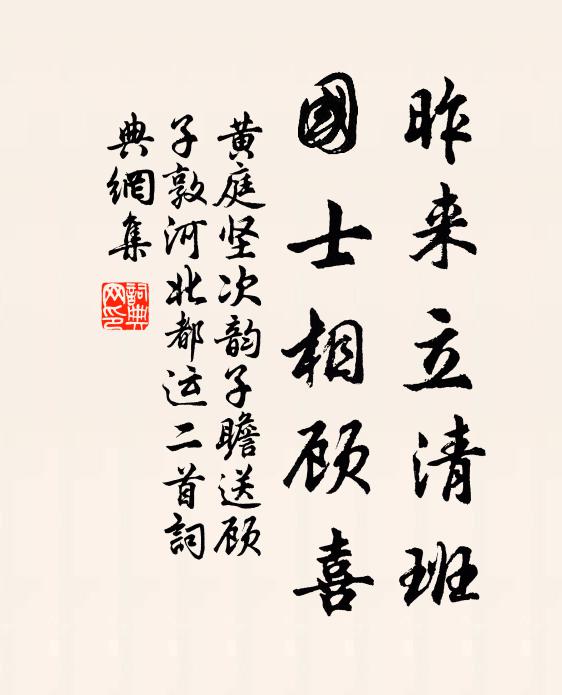 昨来立清班
國士相顾喜
黄庭坚次韵子瞻送顾
子敦河北都运二首詞
典網集
詞典網印